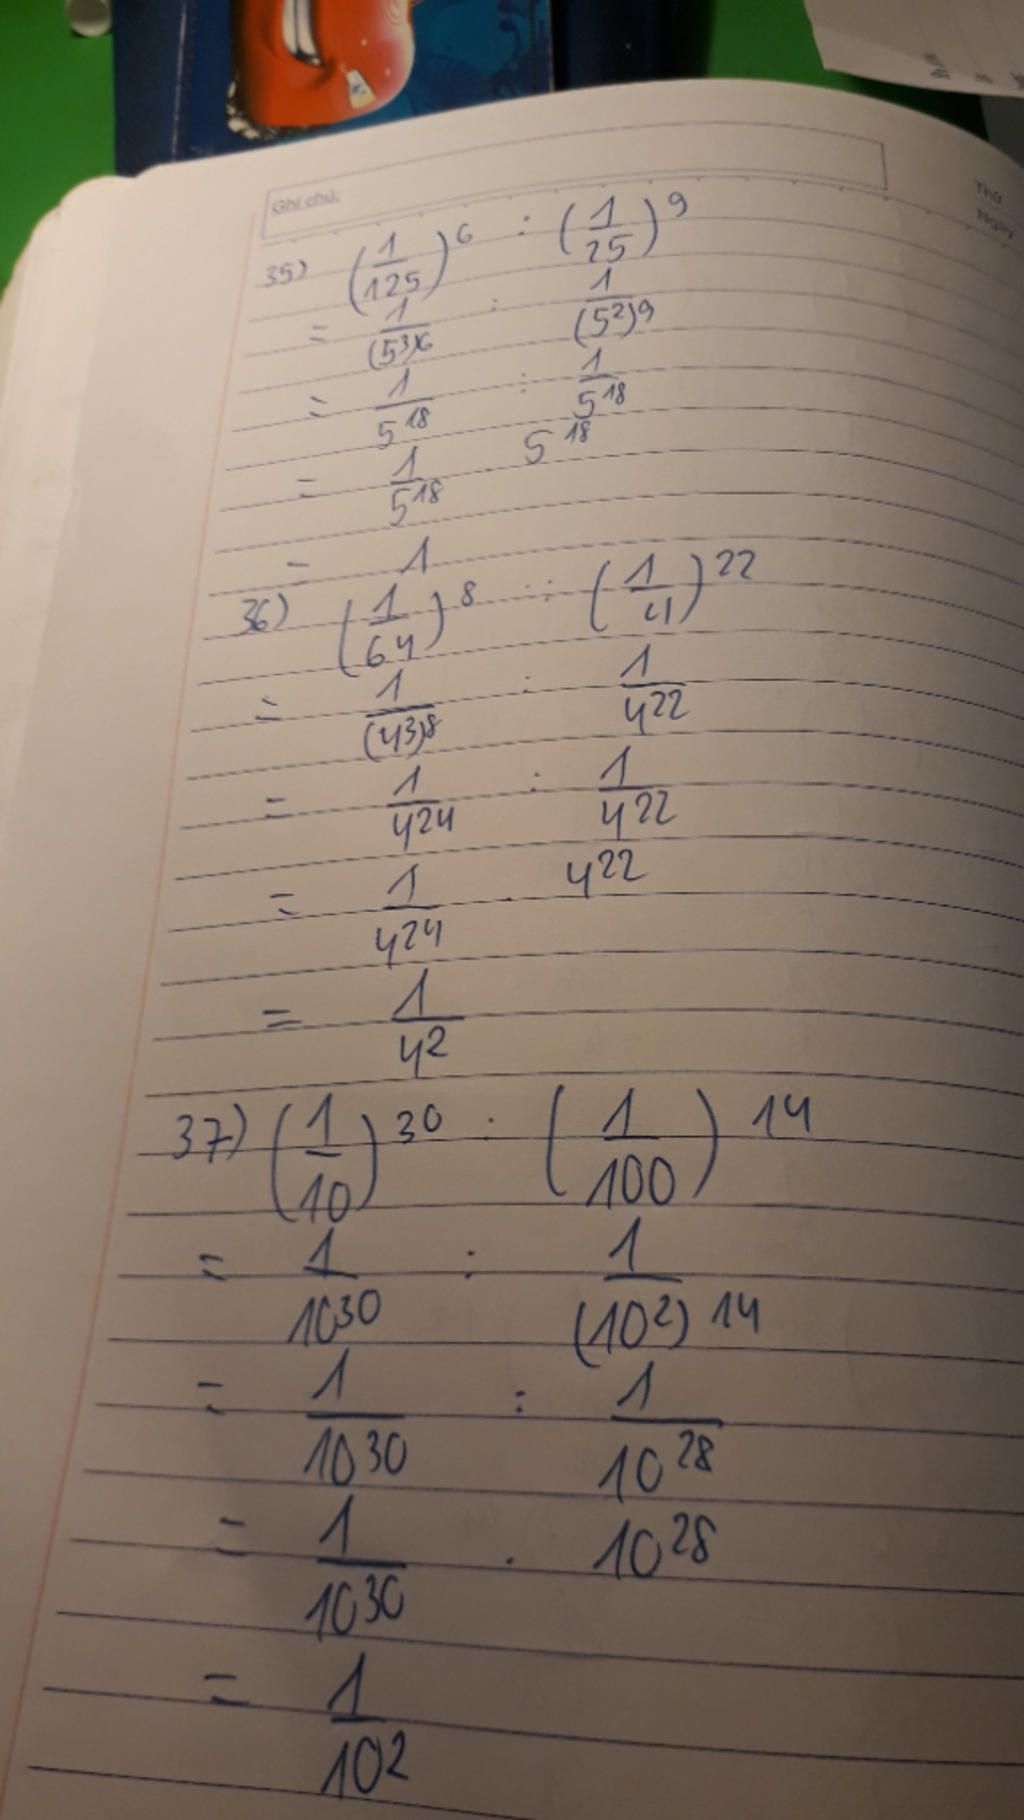 Ghi chú:
Thứ
Ngày
35) (1/125)^6 : (1/25)^9
= 1/(5^3)^6 : 1/(5^2)^9
= 1/5^18 : 1/5^18
= 1/5^18 . 5^18
= 1
36) (1/64)^8 : (1/4)^22
= 1/(4^3)^8 : 1/4^22
= 1/4^24 : 1/4^22
= 1/4^24 . 4^22
= 1/4^2
37) (1/10)^30 : (1/100)^14
= 1/10^30 : 1/(10^2)^14
= 1/10^30 : 1/10^28
= 1/10^30 . 10^28
= 1/10^2